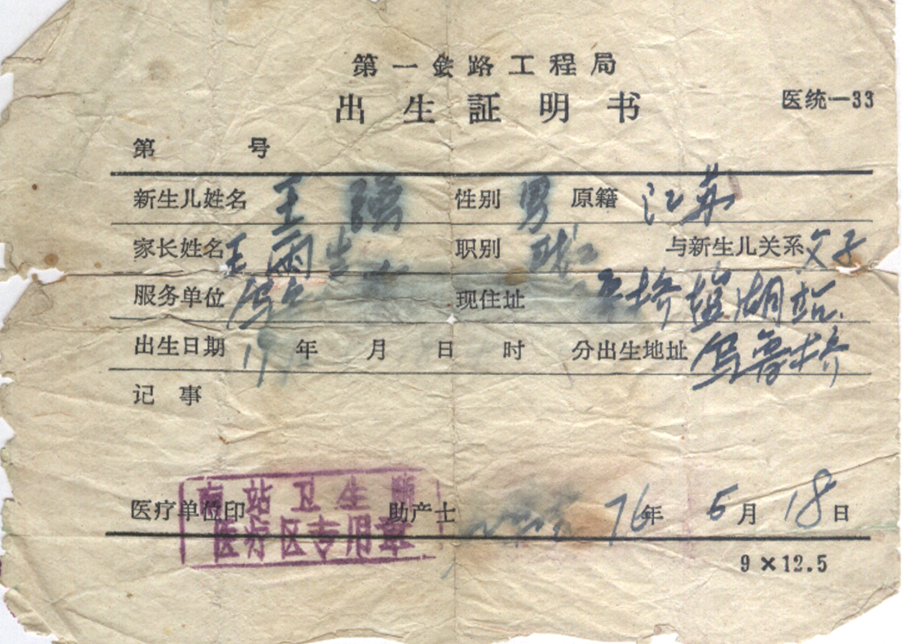 第一铁路工程局
出生証明书
医统—33
第 号
新生儿姓名 王 强 性别 男 原籍 江苏
家长姓名 王雨生 职别 职工 与新生儿关系 父子
服务单位 现住址 盐湖站
出生日期 19 年 月 日 时 分 出生地址 乌鲁木齐
记事
南站卫生所
医疗单位印 助产士 76年 5月 18日
医疗区专用章
9×12.5